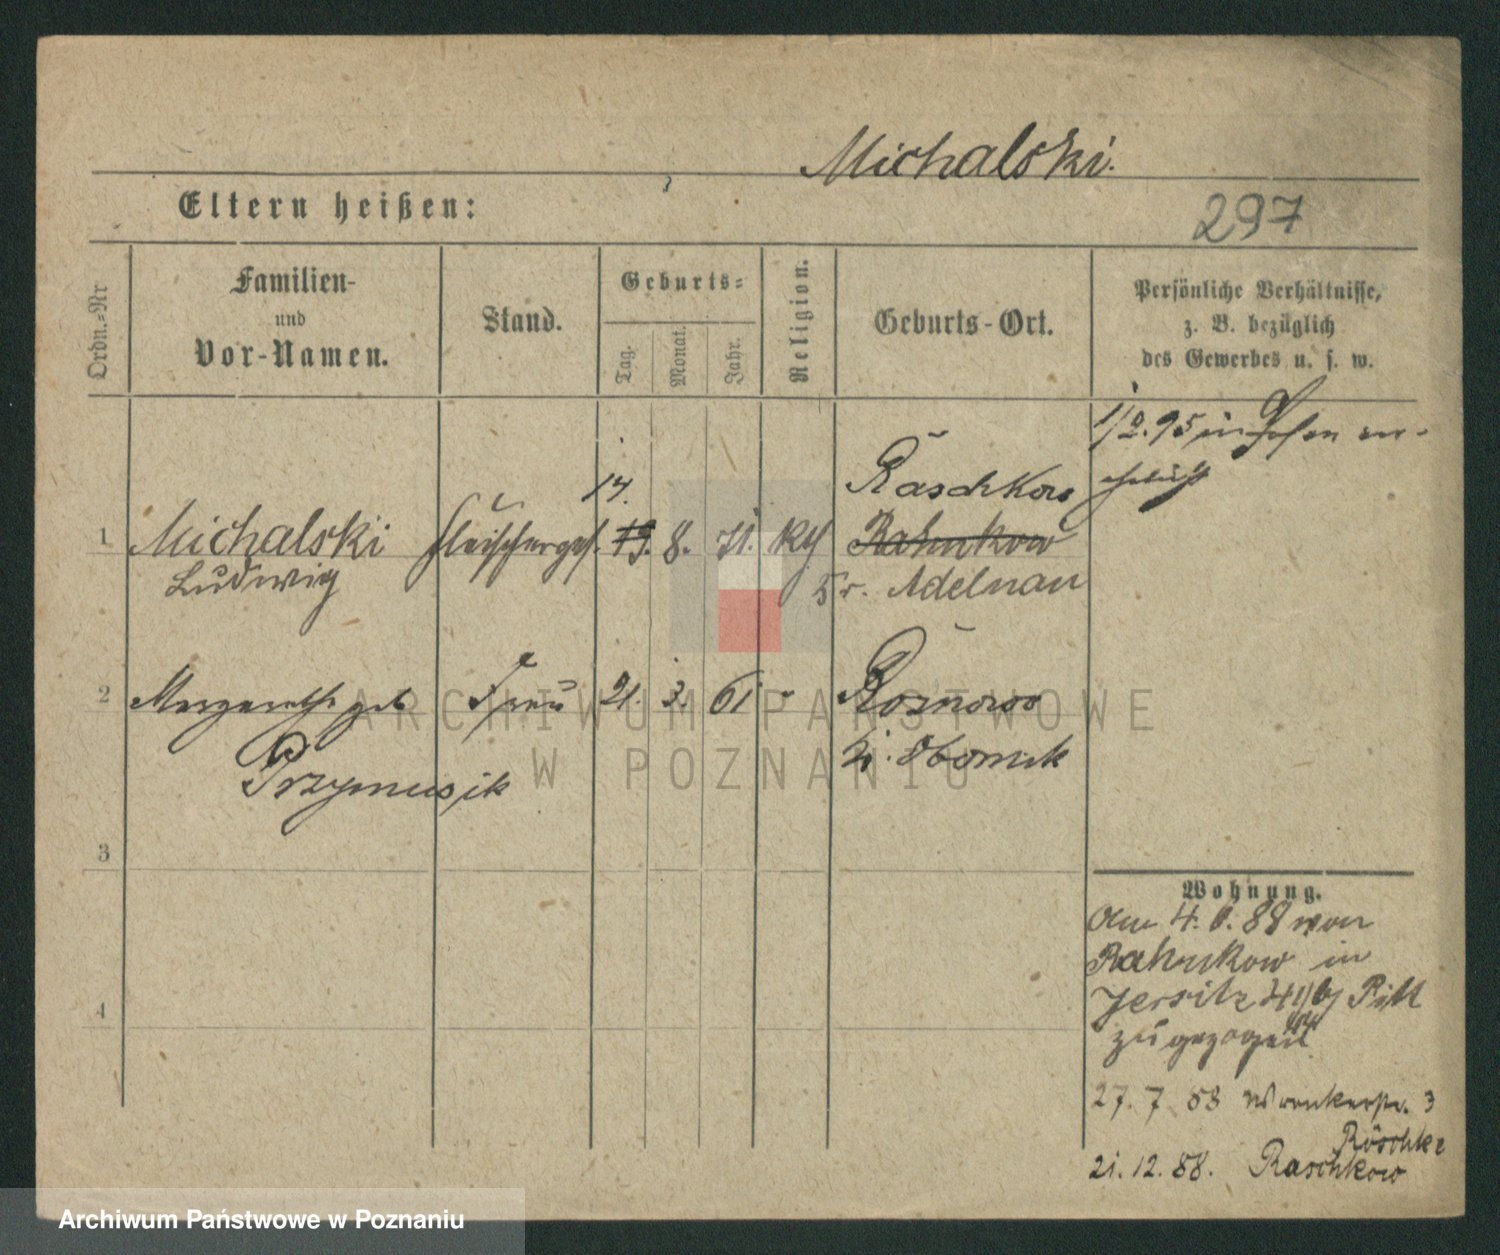 Michalski.
Eltern heißen:
297
Ordn.=Nr
Familien-
und
Vor-Namen.
Stand.
Geburts=
Tag.
Monat.
Jahr.
Religion.
Geburts-Ort.
Persönliche Verhältnisse,
z. B. bezüglich
des Gewerbes u. s. w.
1/2.95 in Posen
1
Michalski
Ludwig
Fleischerges.
14.
19. 8. 71.
Raschkow
Rahnkow
Kr. Adelnau
2
Margarethe geb
Przymusik
Frau
21. 3. 61
Roznowo
Kr. Obornik
3
4
Wohnung.
Am 4. 88 von
Rahnkow in
Jersitz
zugezogen
27. 7 88 Wronkerstr. 3
Röschke
21. 12. 88. Raschkow
ARCHIWUM PAŃSTWOWE
W POZNANIU
Archiwum Państwowe w Poznaniu